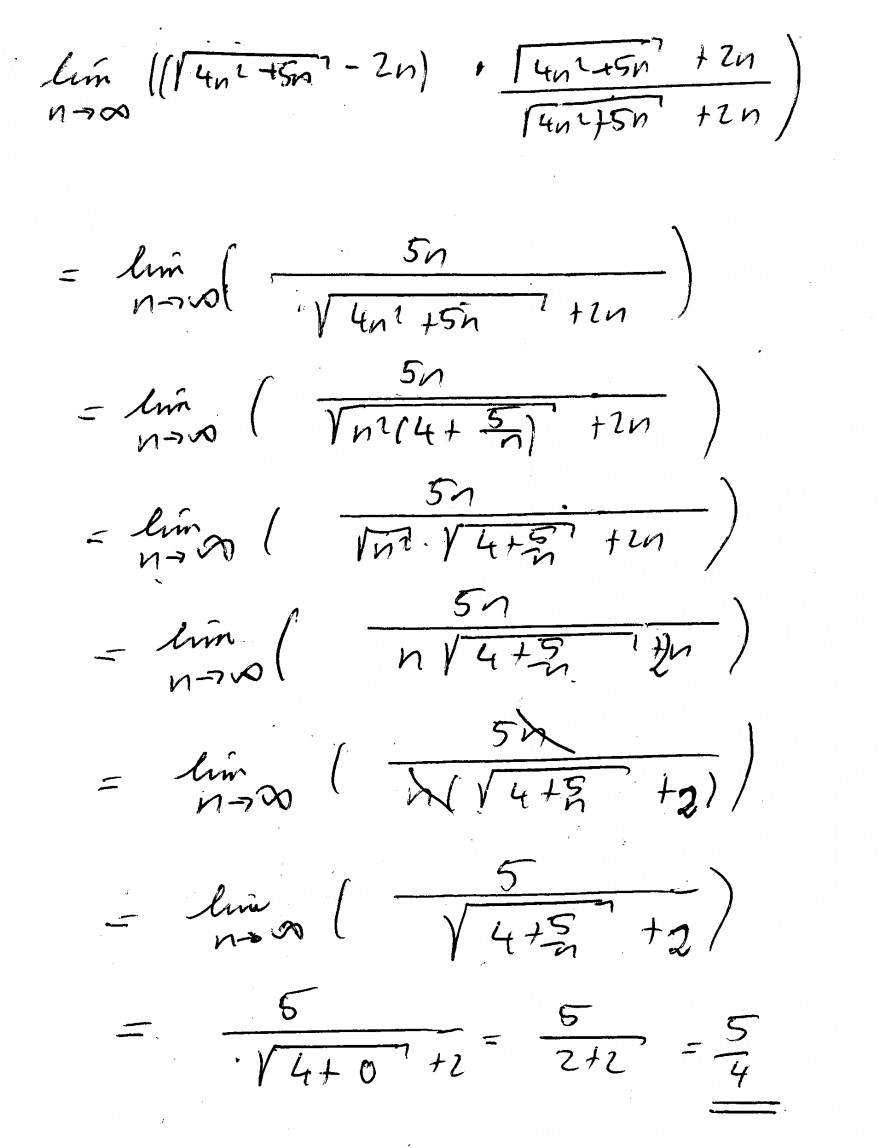 lim n→∞ ((√(4n² + 5n) - 2n) · (√(4n² + 5n) + 2n)/(√(4n² + 5n) + 2n))
= lim n→∞ (5n/(√(4n² + 5n) + 2n))
= lim n→∞ (5n/(√(n²(4 + 5/n)) + 2n))
= lim n→∞ (5n/(√n² · √(4 + 5/n) + 2n))
= lim n→∞ (5n/(n√(4 + 5/n) + 2n))
= lim n→∞ (5n/(n(√(4 + 5/n) + 2)))
= lim n→∞ (5/(√(4 + 5/n) + 2))
= 5/(√(4 + 0) + 2) = 5/(2+2) = 5/4